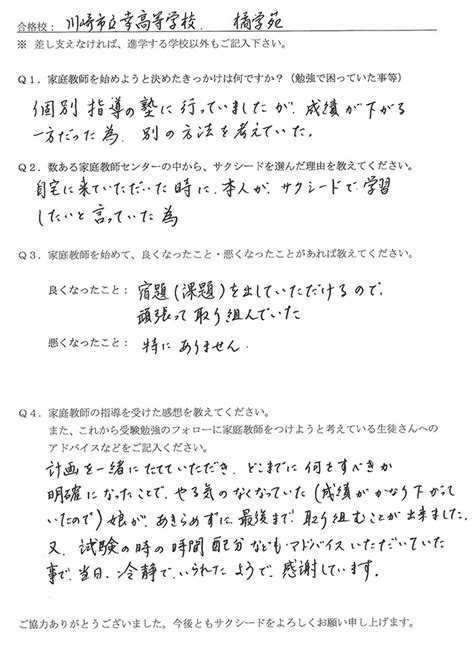 合格校： 川崎市立幸高等学校． 橘学苑
※ 差し支えなければ、進学する学校以外もご記入下さい。
Ｑ１．家庭教師を始めようと決めたきっかけは何ですか？（勉強で困っていた事等）
個別指導の塾に行っていましたが、成績が下がる
一方だった為、別の方法を考えていた。
Ｑ２．数ある家庭教師センターの中から、サクシードを選んだ理由を教えてください。
自宅に来ていただいた時に、本人が、サクシードで学習
したいと言っていた為
Ｑ３．家庭教師を始めて、良くなったこと・悪くなったことがあれば教えてください。
良くなったこと： 宿題(課題)を出していただけるので、
頑張って取り組んでいた
悪くなったこと： 特にありません．
Ｑ４．家庭教師の指導を受けた感想を教えてください。
また、これから受験勉強のフォローに家庭教師をつけようと考えている生徒さんへの
アドバイスなどをご記入ください。
計画を一緒にたてていただき、どこまでに何をすべきか
明確になったことで、やる気のなくなっていた(成績がかなり下がって
いたので)娘が、あきらめずに、最後まで取り組むことが出来ました．
又、試験の時の時間配分なども・アドバイスいただいていた
事で、当日、冷静で、いられたようで、感謝しています。
ご協力ありがとうございました。今後ともサクシードをよろしくお願い申し上げます。